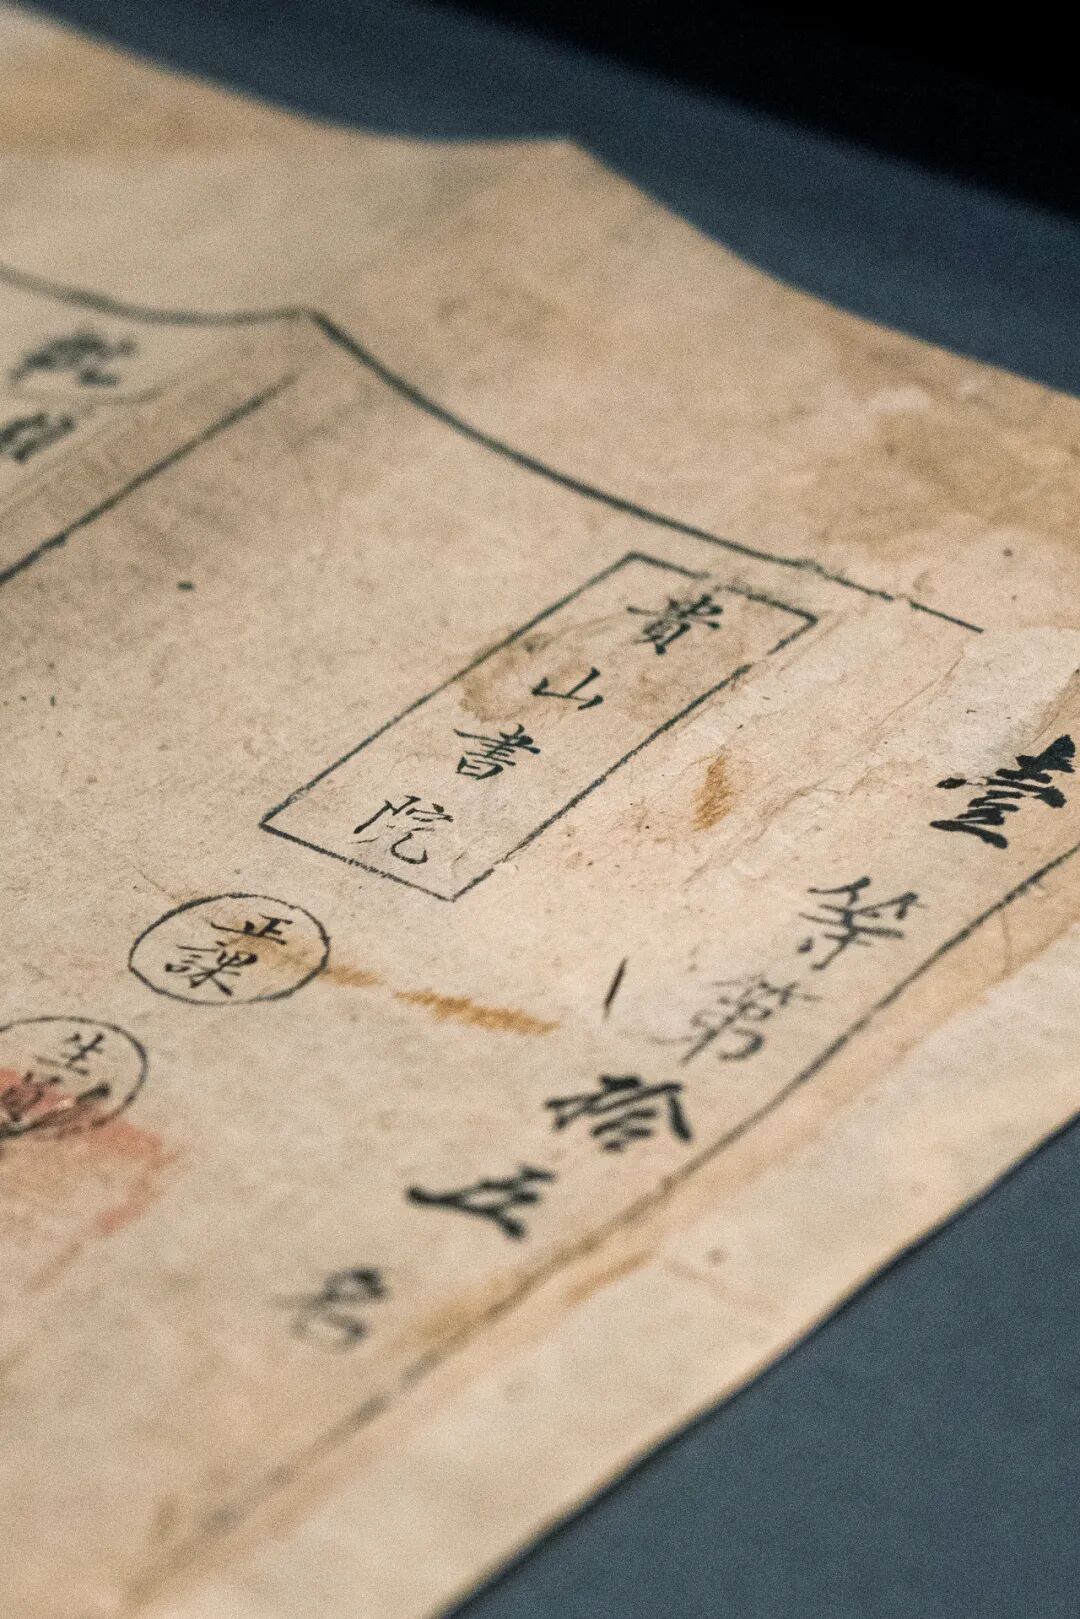 壹等第拾五名
貴山書院
正課
生